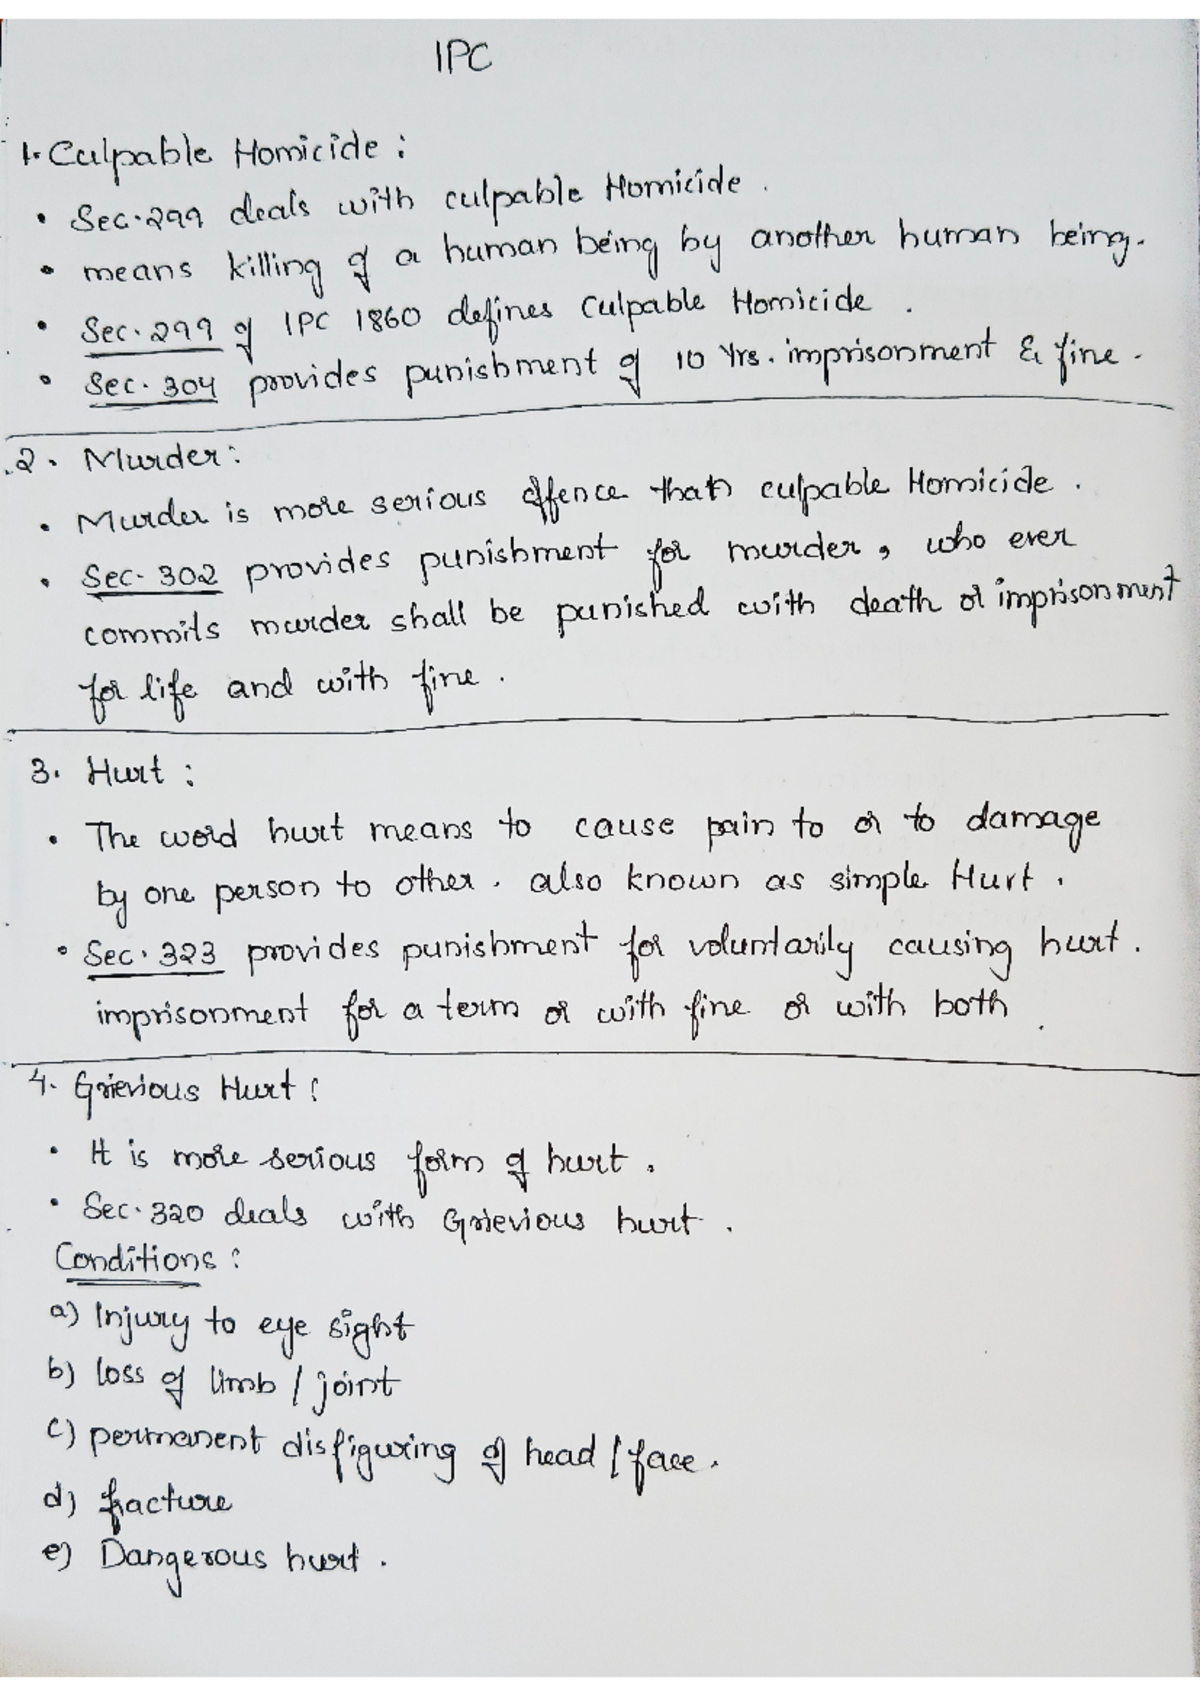 IPC
1. Culpable Homicide :
• Sec. 299 deals with culpable Homicide .
• means killing of a human being by another human being.
• Sec. 299 of IPC 1860 defines Culpable Homicide .
• Sec. 304 provides punishment of 10 Yrs. imprisonment & fine .
2. Murder :
• Murder is more serious offence than culpable Homicide .
• Sec. 302 provides punishment for murder , who ever
commits murder shall be punished with death or imprisonment
for life and with fine .
3. Hurt :
• The word hurt means to cause pain to or to damage
by one person to other . also known as simple Hurt .
• Sec. 323 provides punishment for voluntarily causing hurt .
imprisonment for a term or with fine or with both .
4. Grievious Hurt :
• It is more serious form of hurt .
• Sec. 320 deals with Grievious hurt .
Conditions :
a) Injury to eye sight
b) loss of limb / joint
c) permanent disfiguring of head / face .
d) fracture
e) Dangerous hurt .